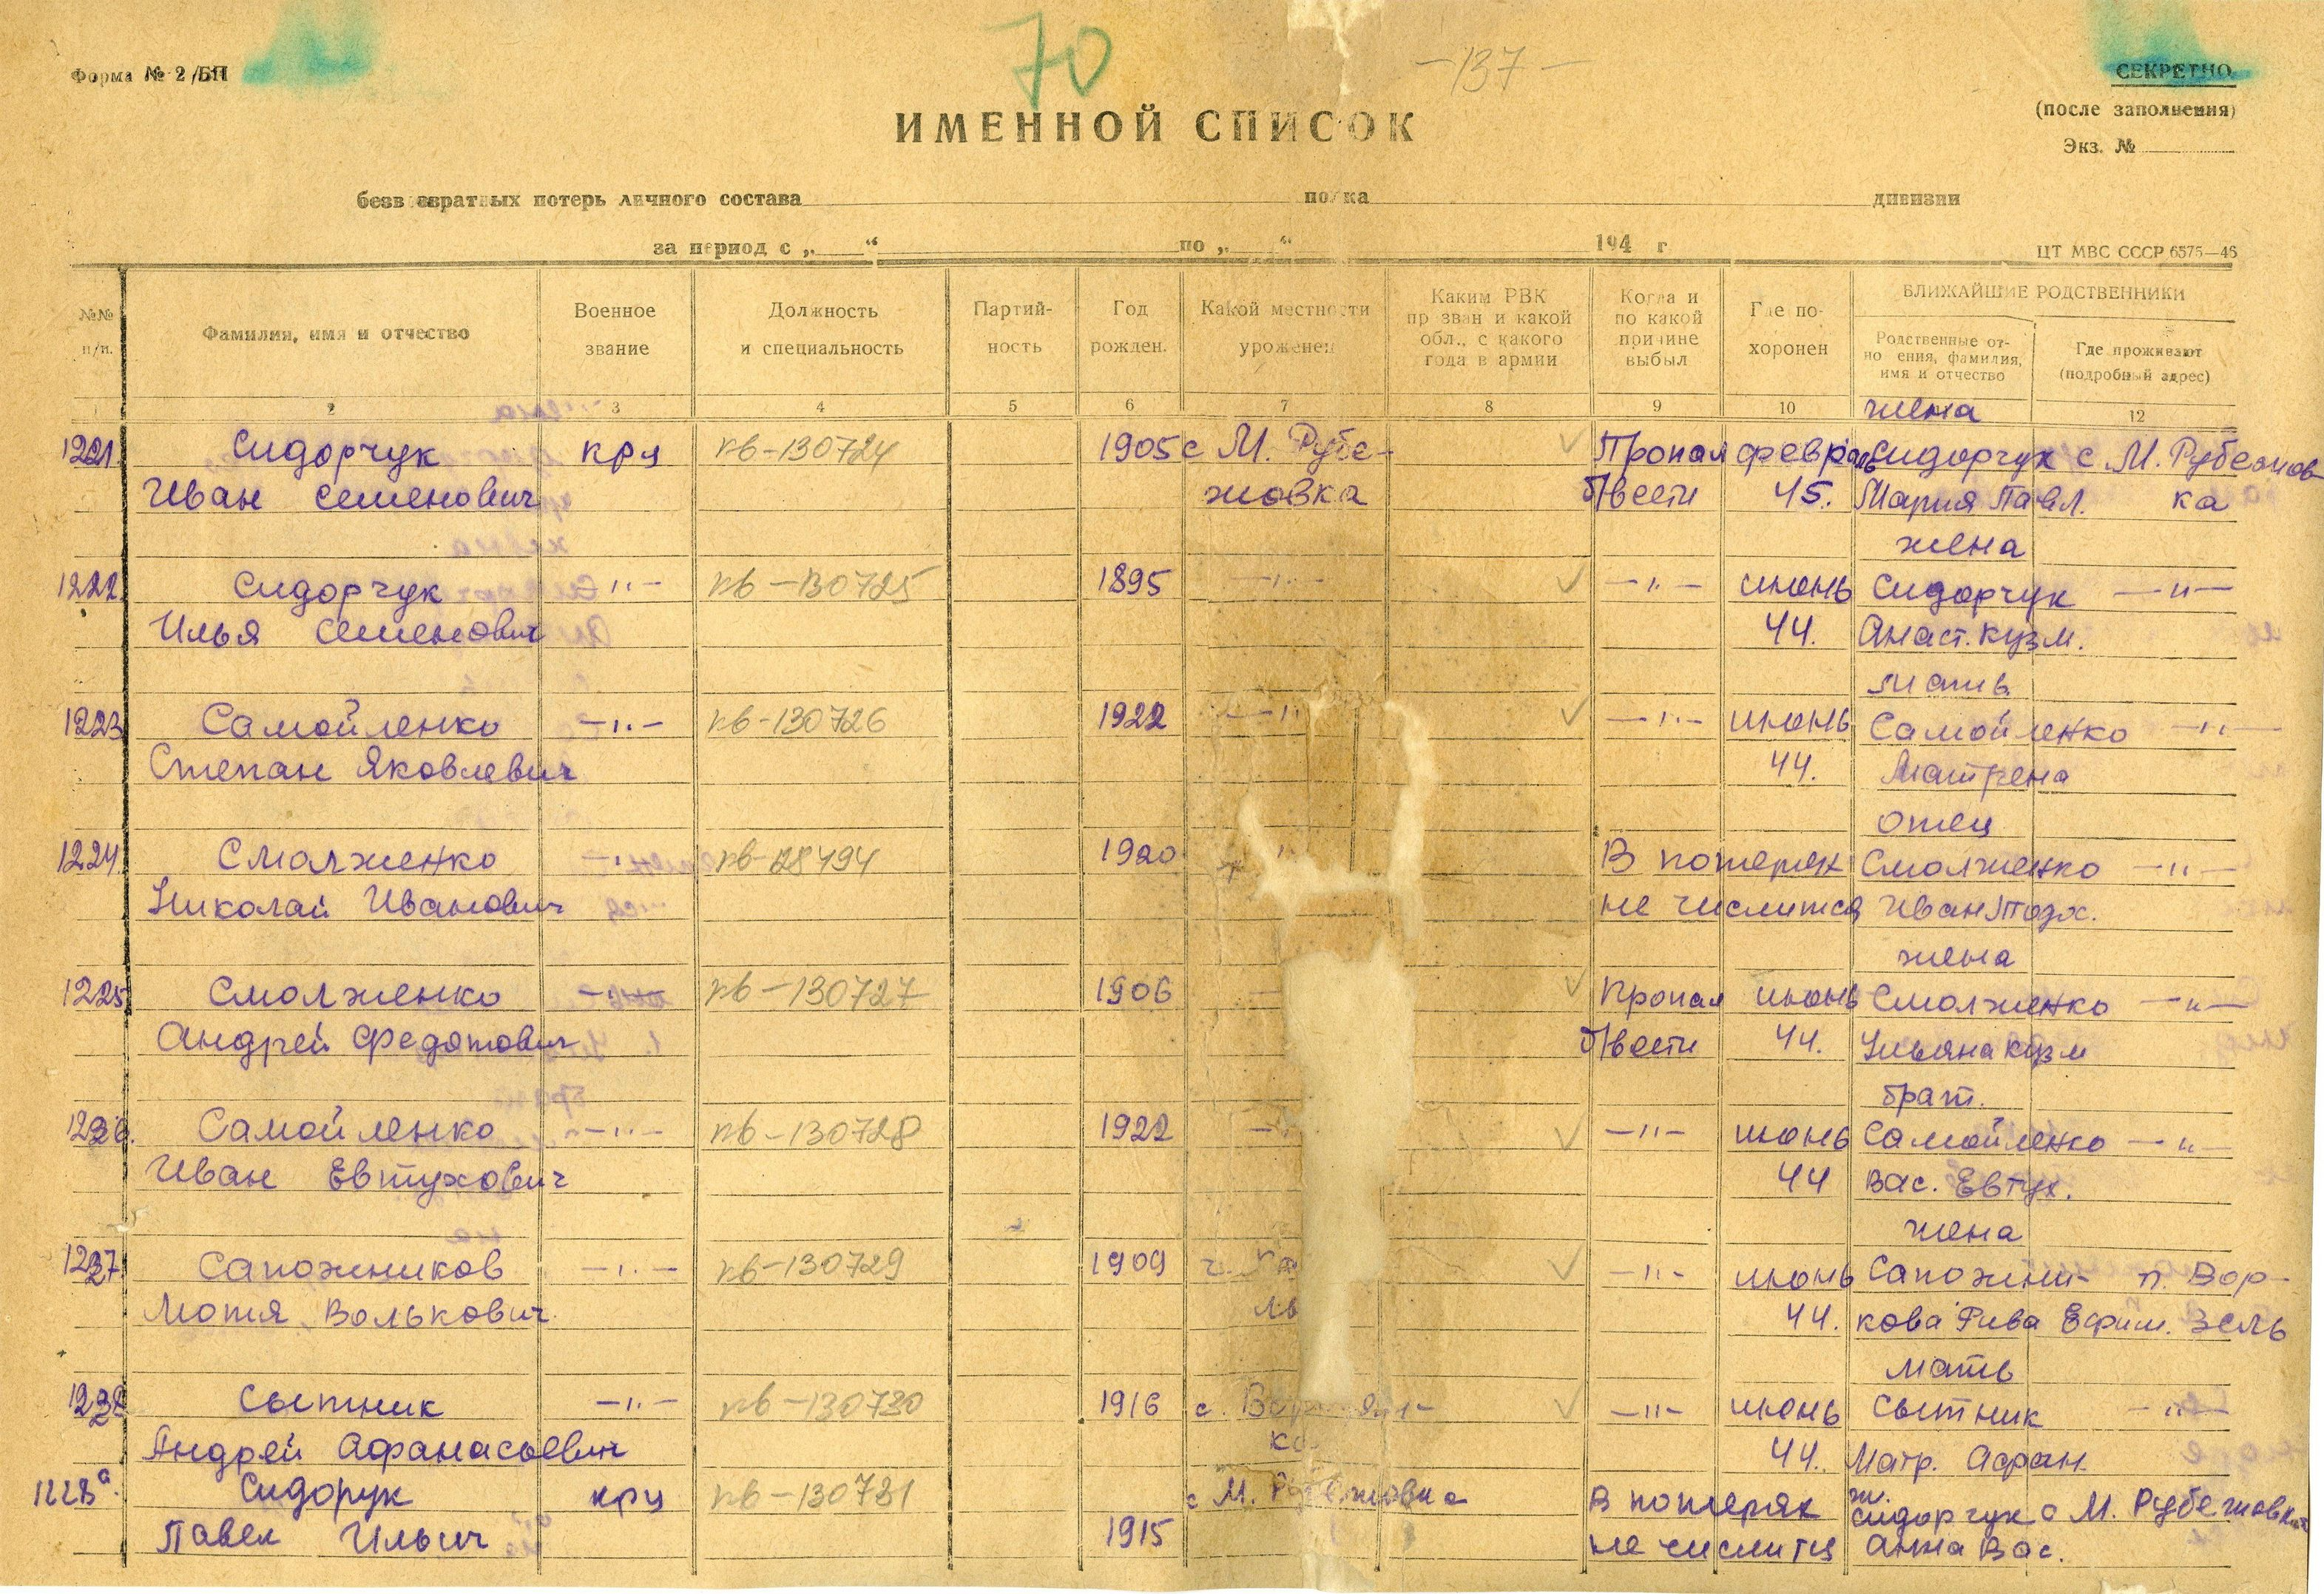 70
—137—
Форма № 2/БП
СЕКРЕТНО
(после заполнения)
Экз. №
ИМЕННОЙ СПИСОК
безвозвратных потерь личного состава полка дивизии
за период с „ “ по „ “ 194 г
ЦТ МВС СССР 6575—46
№№ п/п.
Фамилия, имя и отчество
Военное звание
Должность и специальность
Партий-ность
Год рожден.
Какой местности уроженец
Каким РВК призван и какой обл., с какого года в армии
Когда и по какой причине выбыл
Где по-хоронен
БЛИЖАЙШИЕ РОДСТВЕННИКИ
Родственные от-ношения, фамилия, имя и отчество
Где проживают (подробный адрес)
2 3 4 5 6 7 8 9 10 12
жена
1221 Сидорчук кр-ц кв-130724 1905 с М. Рубе- Пропал февраль Сидорчук с. М. Рубежов
Иван Семенович жовка б/вести 45. Мария Павл. ка
жена
1222. Сидорчук —"— кв-130725 1895 —"— —"— июнь Сидорчук —"—
Илья Семенович 44. Анаст. Кузм.
мать
1223 Самойленко —"— кв-130726 1922 —"— —"— июнь Самойленко —"—
Степан Яковлевич 44. Матрена
отец
1224. Смолженко —"— кв-28494 1920 В потерях Смолженко —"—
Николай Иванович не числится Иван
жена
1225 Смолженко —"— кв-130727 1906 Пропал июнь Смолженко —"—
Андрей Федотович б/вести 44. Ульяна Кузм
брат.
1226. Самойленко —"— кв-130728 1922 —"— июнь Самойленко —"—
Иван Евтухович 44 Вас. Евтух.
жена
1227 Сапожников —"— кв-130729 1909 —"— июнь Сапожни- п. Вор-
Мотя Волькович 44. кова Рива Ефим. зель
мать
1228 Сытник —"— кв-130730 1916 с. —"— июнь Сытник —"—
Андрей Афанасьевич 44. Матр. Афан.
1228а. Сидорук кр-ц кв-130731 с М. Рубежовка В потерях ж. Сидорчук с М. Рубежовка
Павел Ильич 1915 не числится Анна Вас.